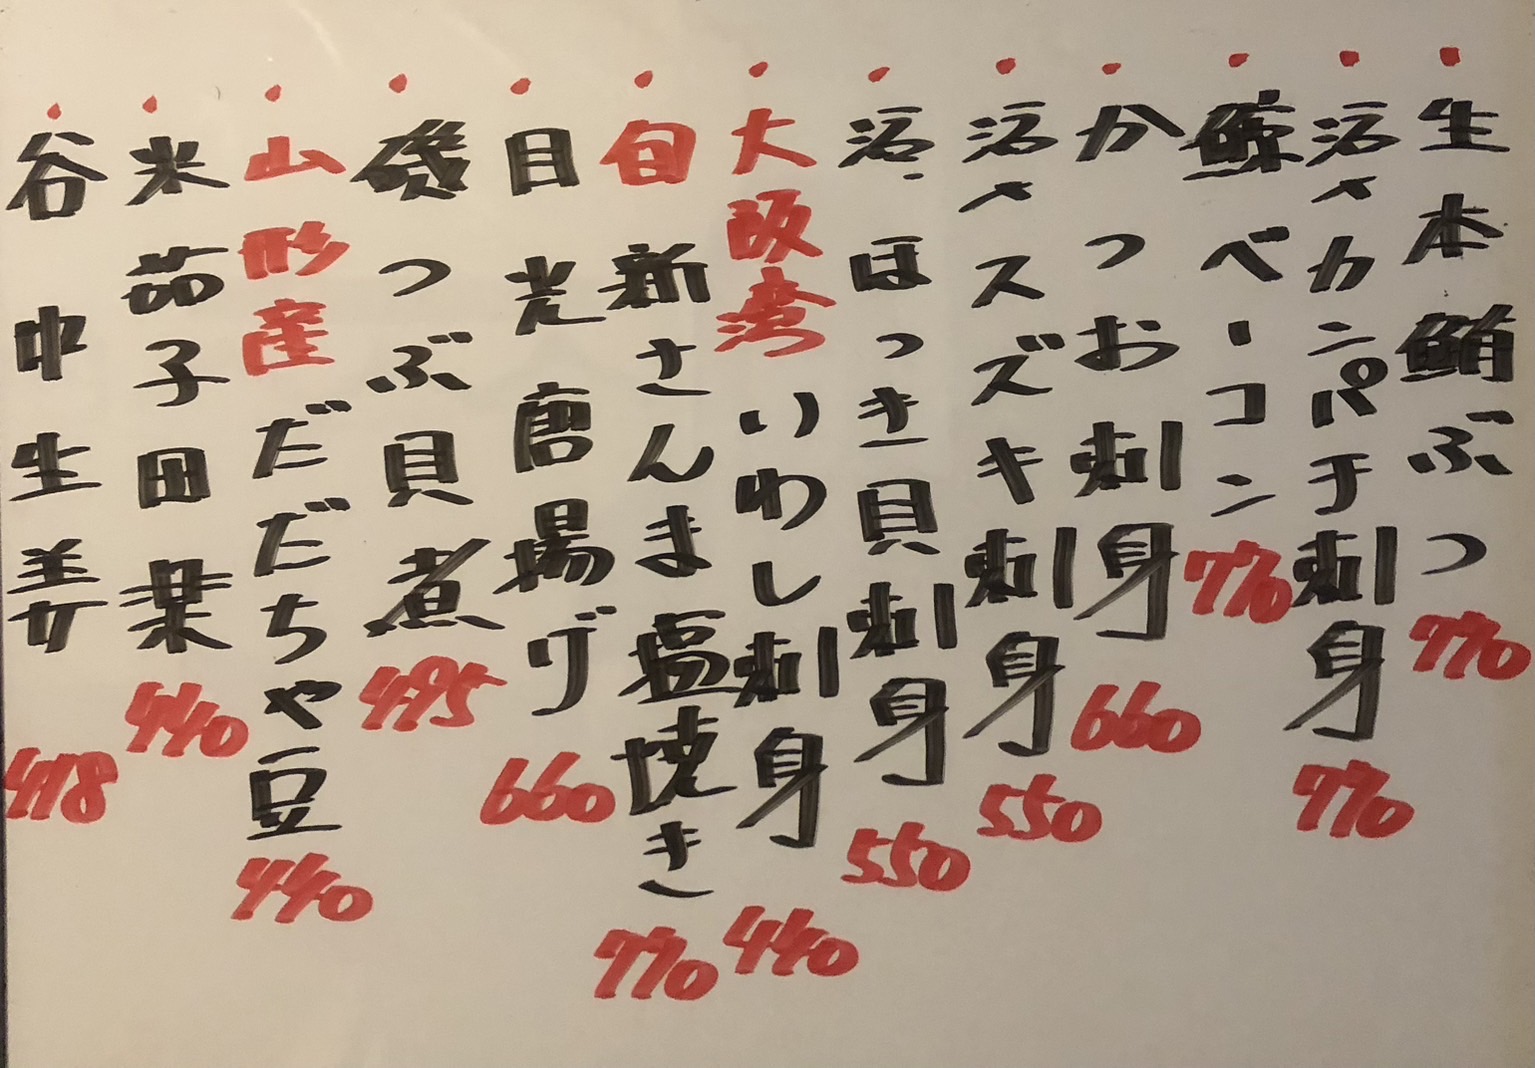 ・生本鮪ぶつ 770
・活〆カンパチ刺身 770
・鯨ベーコン 770
・かつお刺身 660
・活〆スズキ刺身 550
・活ほっき貝刺身 550
・大阪湾いわし刺身 440
・旬新さんま塩焼き 770
・目光唐揚げ 660
・磯つぶ貝煮 495
・山形産だだちゃ豆 440
・米茄子田楽 440
・谷中生姜 418